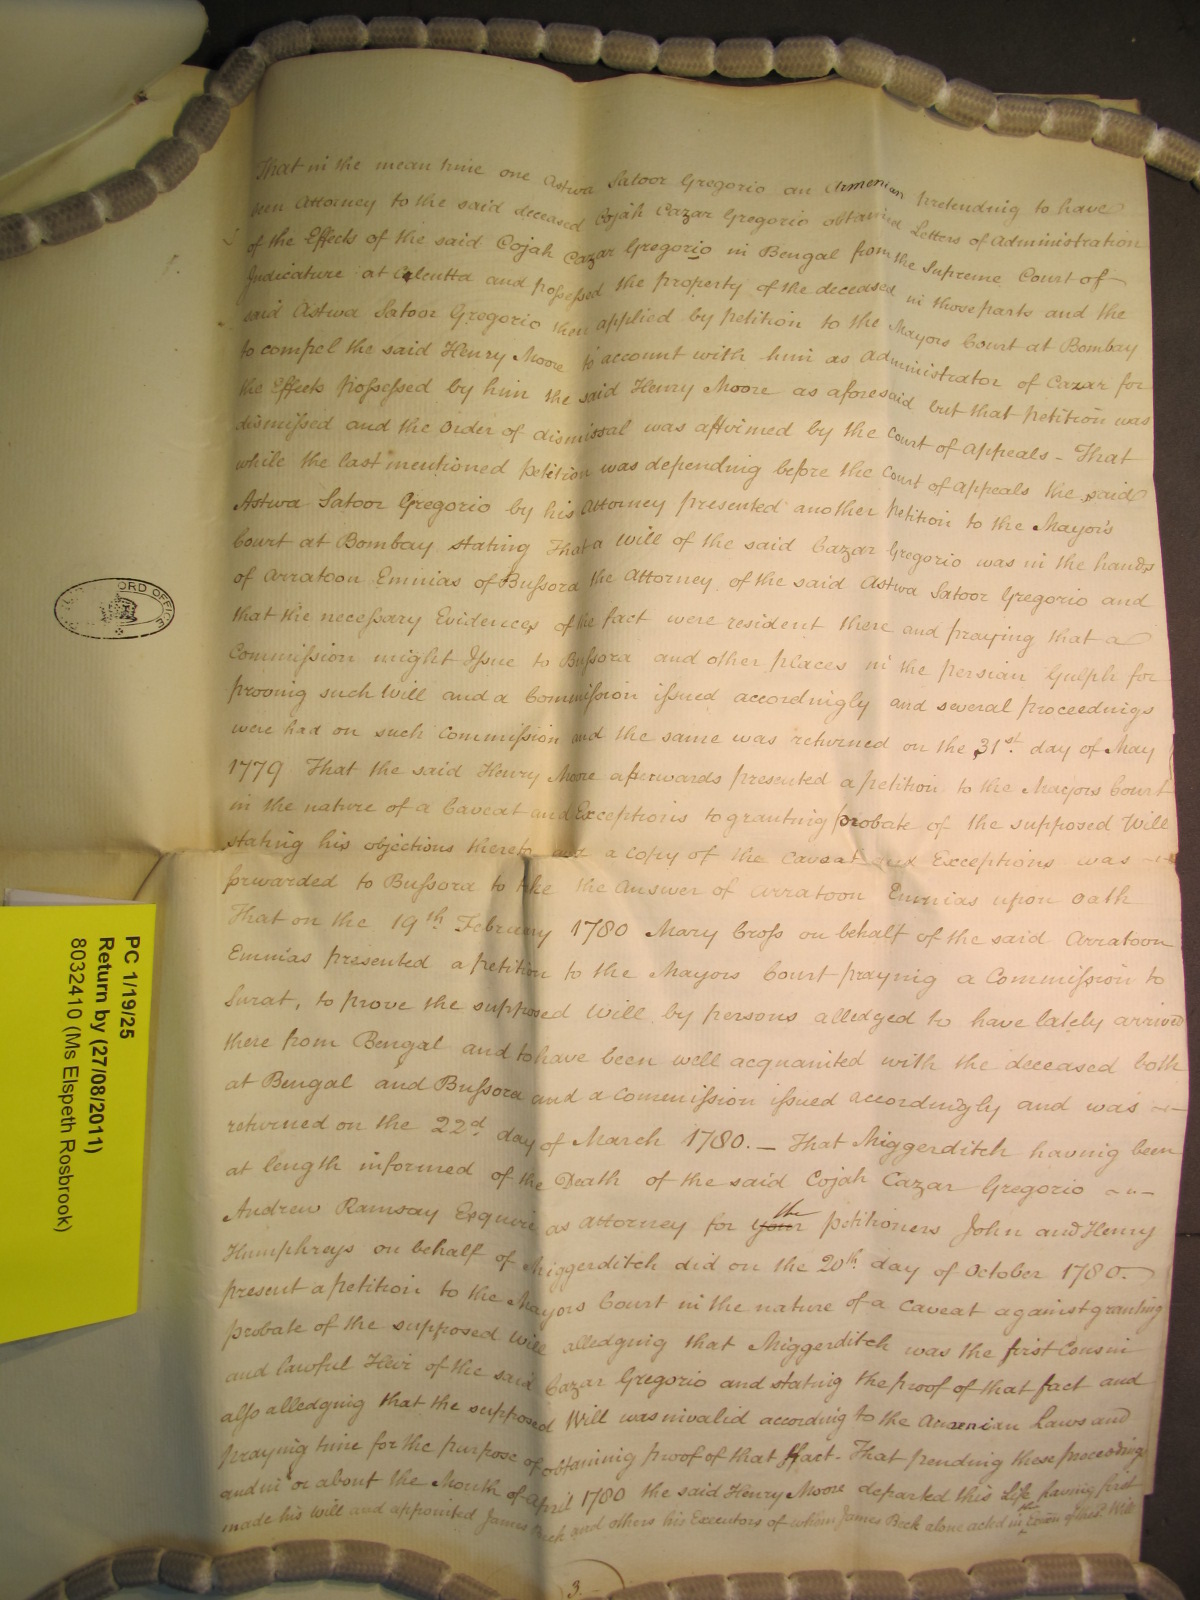 That in the mean time one Astwa Satoor Gregorio an Armenian pretending to have
been Attorney to the said deceased Cojah Cazar Gregorio obtained Letters of Administration
of the Effects of the said Cojah Cazar Gregorio in Bengal from the Supreme Court of
Judicature at Calcutta and possessed the property of the deceased in those parts and the
said Astwa Satoor Gregorio then applied by petition to the Mayors Court at Bombay
to compel the said Henry Moore to account with him as Administrator of Cazar for
the Effects possessed by him the said Henry Moore as aforesaid but that petition was
dismissed and the Order of dismissal was affirmed by the Court of Appeals - That
while the last mentioned petition was depending before the Court of Appeals the said
Astwa Satoor Gregorio by his Attorney presented another petition to the Mayor's
Court at Bombay stating That a Will of the said Cazar Gregorio was in the hands
of Arratoon Emnias of Bussora the Attorney of the said Astwa Satoor Gregorio and
that the necessary Evidences of the fact were resident there and praying that a
Commission might Issue to Bussora and other places in the persian Gulph for
proving such Will and a Commission issued accordingly and several proceedings
were had on such Commission and the same was returned on the 31st. day of May
1779 That the said Henry Moore afterwards presented a petition to the Mayors Court
in the nature of a Caveat and Exceptions to granting probate of the supposed Will
stating his objections thereto and a copy of the Caveat and Exceptions was
forwarded to Bussora to take the Answer of Arratoon Emnias upon Oath
That on the 19th February 1780 Mary Cross on behalf of the said Arratoon
Emnias presented a petition to the Mayors Court praying a Commission to
Surat, to prove the supposed Will by persons alledged to have lately arrived
there from Bengal and to have been well acquainted with the deceased both
at Bengal and Bussora and a Commission issued accordingly and was
returned on the 22d day of March 1780. — That Miggerditch having been
at length informed of the Death of the said Cojah Cazar Gregorio
Andrew Ramsay Esquire as Attorney for your the petitioners John and Henry
Humphreys on behalf of Miggerditch did on the 20th. day of October 1780.
present a petition to the Mayors Court in the nature of a Caveat against granting
probate of the supposed Will alledging that Miggerditch was the first Cousin
and lawful Heir of the said Cazar Gregorio and stating the proof of that fact and
also alledging that the supposed Will was invalid according to the Armenian Laws and
praying time for the purpose of obtaining proof of that ffact - That pending these proceedings
and in or about the Month of April 1780 the said Henry Moore departed this Life having first
made his Will and appointed James Beck and others his Executors of whom James Beck alone acted in the
3
ORD OFFICE
PC 1/19/25
Return by (27/08/2011)
8032410 (Ms Elspeth Rosbrook)